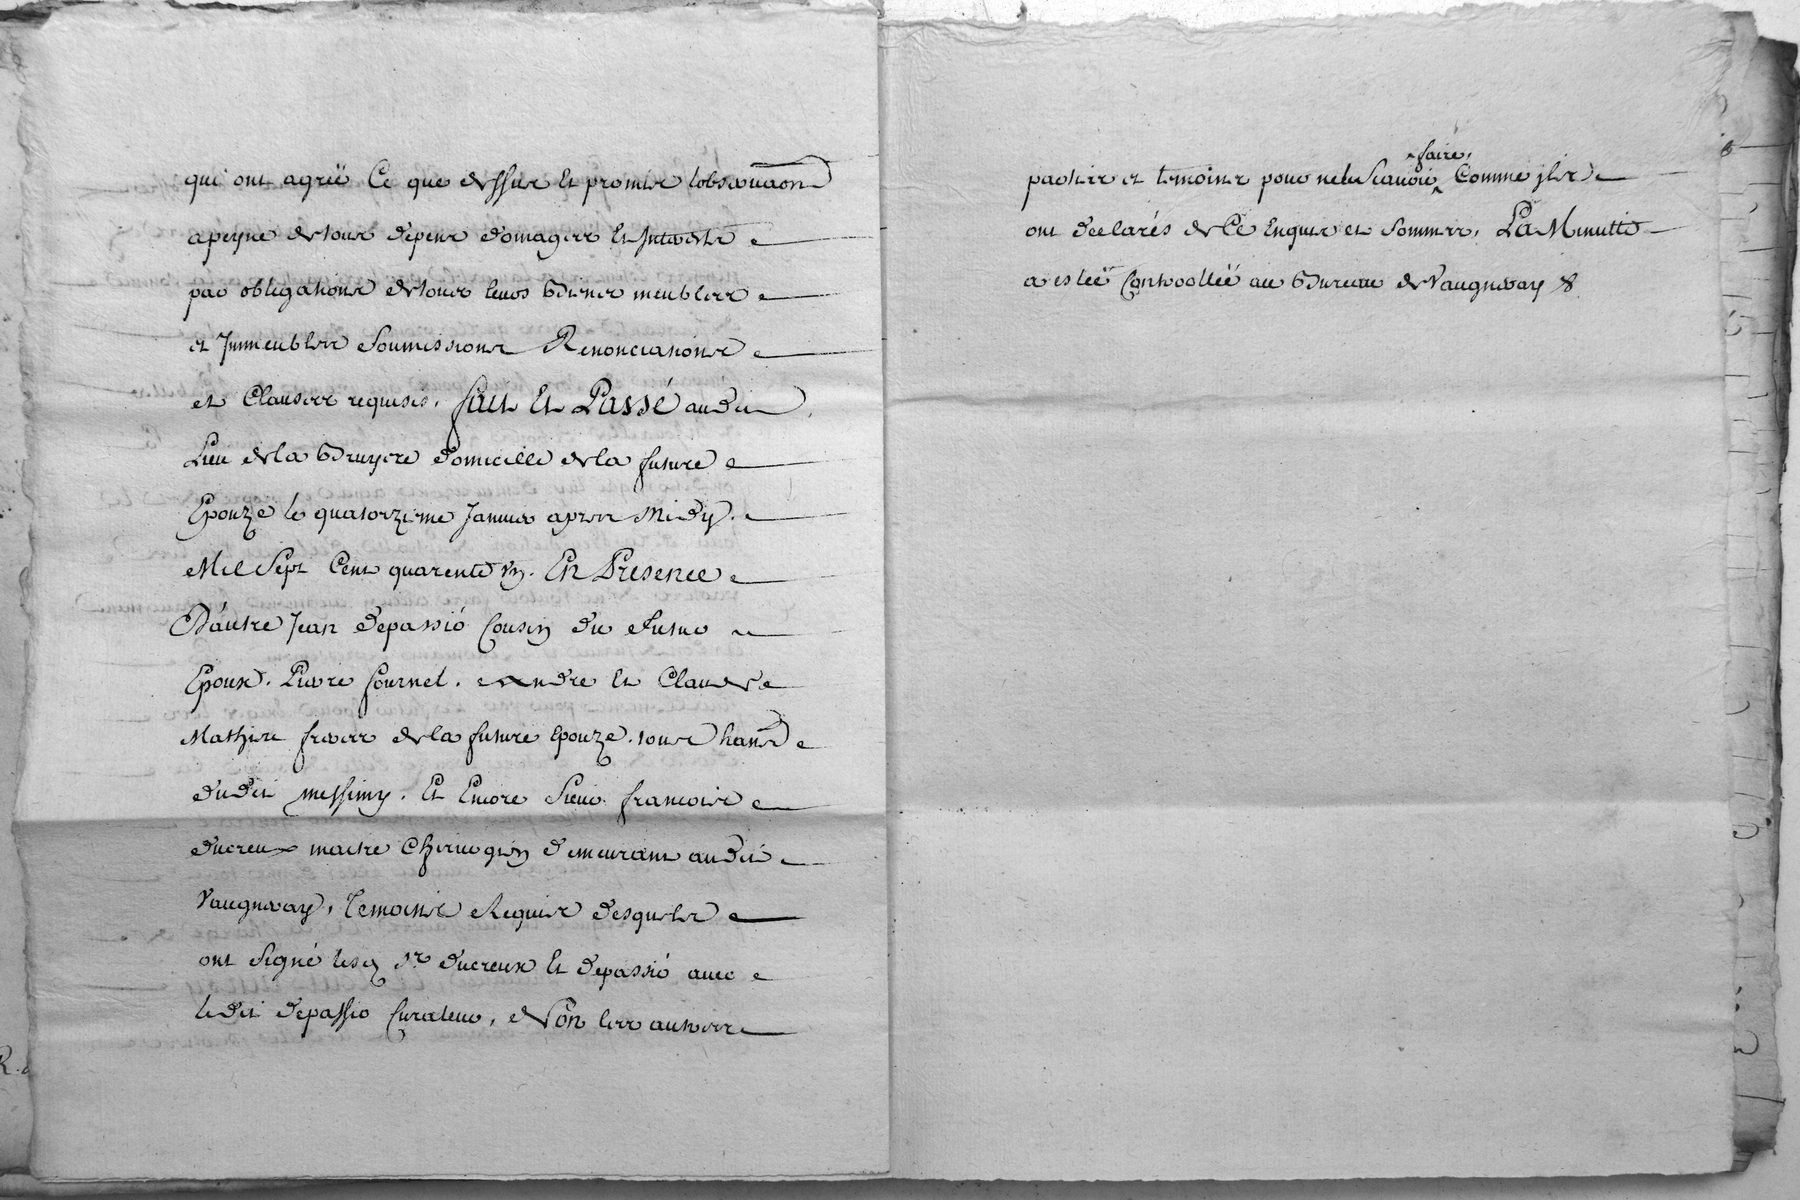 qui ont agréé Ce que dessus Et promis lobservaon
a peyne de tous depens domages Et Interets
par obligations de tous leurs Biens meubles
et Immeubles Soumissions Renonciations
et Clauses requises. fait Et Passé audit
Lieu de la Bruyere domicille de la future
Epouze le quatorzieme Janvier apres Midy.
Mil Sept Cent quarente Un. En Presence
D'autre Jean depassio Cousin du futur
Epoux. Pierre fournel. andre Et Claude
Mathieu freres de la future Epouze. tous hans
dudit messimy. Et Encore Sieur francois
ducreux maitre Chirurgien demeurant audit
Vaugneray, Temoins Requis desquels
ont Signé lesd Sr. ducreux Et depassio avec
ledit depassio Curateur, Non les autres
parties et temoins pour ne le Scavoir faire, Comme ils
ont declarés de Ce Enquis et Sommes, La Minutte
a estéé Controlléé au Bureau de Vaugneray &